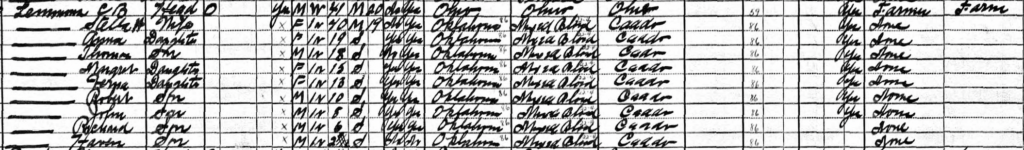 Lemmons C B Head O Yes M W 41 M 20 No Yes Ohio Ohio Ohio 59 Yes Farmer Farm
Wife F In 40 M 19 Yes Oklahoma Mixed Blood Caddo 86 Yes None
Daughter F In 19 S Yes Oklahoma Mixed Blood Caddo 86 Yes None
Thomas Son M In 18 S Yes Oklahoma Mixed Blood Caddo 86 Yes None
Margret Daughter F In 15 S Yes Yes Oklahoma Mixed Blood Caddo 86 Yes None
Daughter F In 13 S Yes Yes Oklahoma Mixed Blood Caddo 86 Yes None
Robert Son M In 10 S Yes Yes Oklahoma Mixed Blood Caddo 86 Yes None
John Son M In 8 S Yes Oklahoma Mixed Blood Caddo 86 Yes None
Richard Son M In 6 S Oklahoma Mixed Blood Caddo 86 None
Son M In S Oklahoma Mixed Blood Caddo 86 None